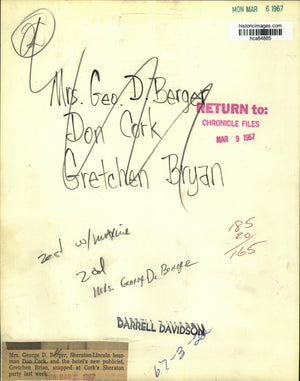 MON MAR 6 1967
historicimages.com
hca64665
2
Mrs. Geo. D. Berger
Don Cork
Gretchen Bryan
RETURN to:
CHRONICLE FILES
MAR 9 1967
185
20
165
2col w/maxine
2col
Mrs. George D. Berger
DARRELL DAVIDSON
Mrs. George D. Berger, Sheraton-Lincoln host
Don Cork, and the hotel's new publicist,
Gretchen Brian, snapped at Cork's Sheraton
party last week.
67-3-